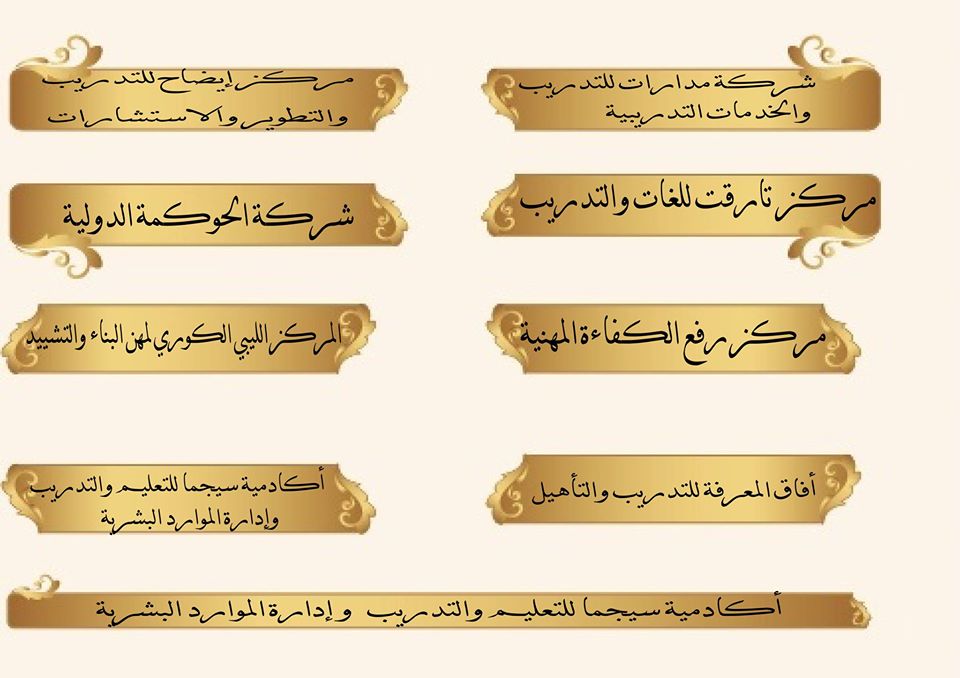 شركة مدارات للتدريب
والخدمات التدريبية
مركز إيضاح للتدريب
والتطوير والاستشارات
مركز تارقت للغات والتدريب
شركة الحوكمة الدولية
مركز رفع الكفاءة المهنية
المركز الليبي الكوري لمهن البناء والتشييد
أفاق المعرفة للتدريب والتأهيل
أكادمية سيجما للتعليم والتدريب
وإدارة الموارد البشرية
أكادمية سيجما للتعليم والتدريب وإدارة الموارد البشرية